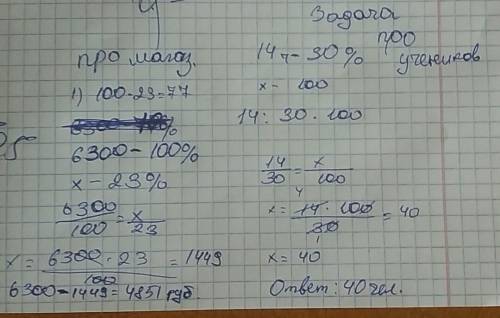 про магаз.
1) 100-23=77
6300-100%
x-23%
6300/100=x/23
x=6300·23/100=1449
6300-1449=4851 руб.
Задача
про
учеников
14ч-30%
x-100
14:30·100
14/30=x/100
4
x=14·100/30=40
1
x=40
Ответ: 40 чел.